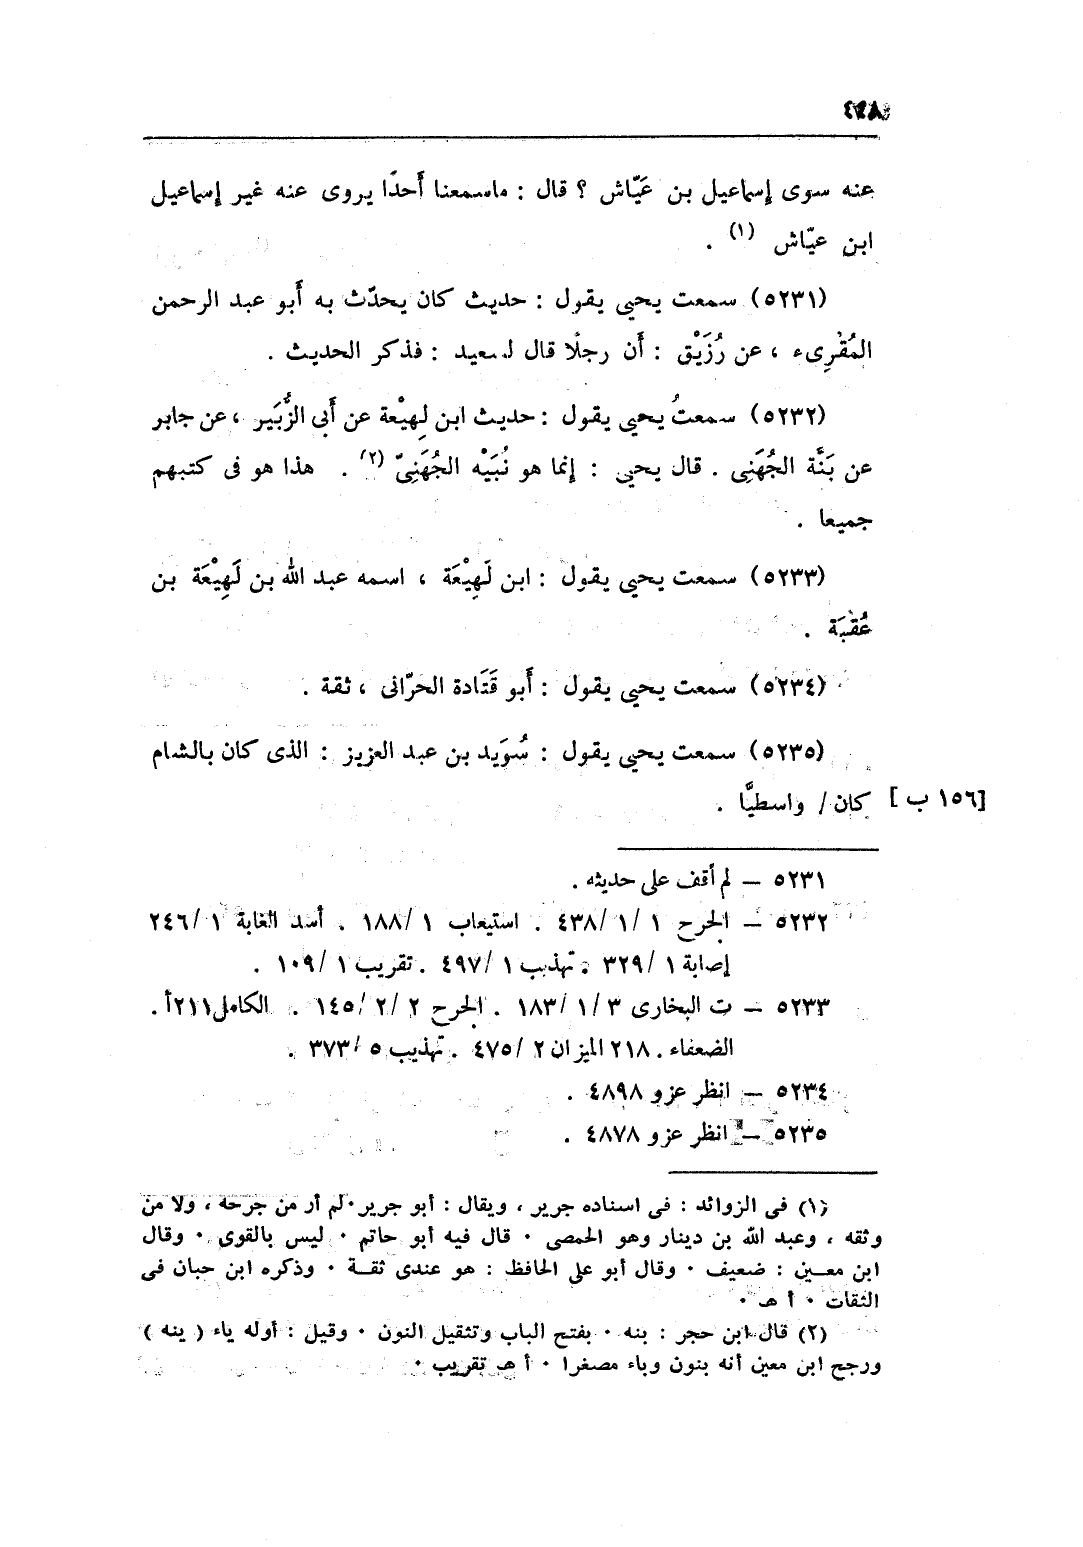 ٤٧٨
عنه سوى إسماعيل بن عَيّاش ؟ قال : ماسمعنا أَحدًا يروى عنه غير إسماعيل
ابن عيّاش (١) .
(٥٢٣١) سمعت يحيى يقول : حديث كان يحدّث به أَبو عبد الرحمن
المُقْرِىء ، عن رُزَيْق : أَن رجلًا قال لسعيد : فذكر الحديث .
(٥٢٣٢) سمعتُ يحيى يقول : حديث ابن لهِيْعة عن أَبى الزُّبَير ، عن جابر
عن بَنَّة الجُهَنِى . قال يحيى : إنما هو نُبَيْه الجُهَنِىّ (٢) . هذا هو فى كتبهم
جميعا .
(٥٢٣٣) سمعت يحيى يقول : ابن لَهِيْعَة ، اسمه عبد الله بن لَهِيْعَة بن
عُقْبَة .
(٥٢٣٤) سمعت يحيى يقول : أَبو قَتَادة الحرّانى ، ثقة .
(٥٢٣٥) سمعت يحيى يقول : سُوَيد بن عبد العزيز : الذى كان بالشام
كان / واسطيًّا . [١٥٦ ب]
٥٢٣١ – لم أقف على حديثه .
٥٢٣٢ – الجرح ١ /١ /٤٣٨ . استيعاب ١ /١٨٨ . أسد الغابة ١ /٢٤٦
إصابة ١ /٣٢٩ . تهذيب ١ /٤٩٧ . تقريب ١ /١٠٩ .
٥٢٣٣ – ت البخارى ٣ /١ /١٨٣ . الجرح ٢ /٢ /١٤٥ . الكامل ٢١١أ .
الضعفاء . ٢١٨ الميزان ٢ /٤٧٥ . تهذيب ٥ /٣٧٣ .
٥٢٣٤ – انظر عزو ٤٨٩٨ .
٥٢٣٥ – انظر عزو ٤٨٧٨ .
(١) فى الزوائد : فى اسناده جرير ، ويقال : أبو جرير ٠ لم أر من جرحه ، ولا من
وثقه ، وعبد الله بن دينار وهو الحمصى ٠ قال فيه أبو حاتم ٠ ليس بالقوى ٠ وقال
ابن معين : ضعيف ٠ وقال أبو على الحافظ : هو عندى ثقة ٠ وذكره ابن حبان فى
الثقات ٠ أ هـ ٠
(٢) قال ابن حجر : بنه ٠ بفتح الباب وتثقيل النون ٠ وقيل : أوله ياء ( ينه )
ورجح ابن معين أنه بنون وباء مصغرا ٠ أ هـ تقريب ٠